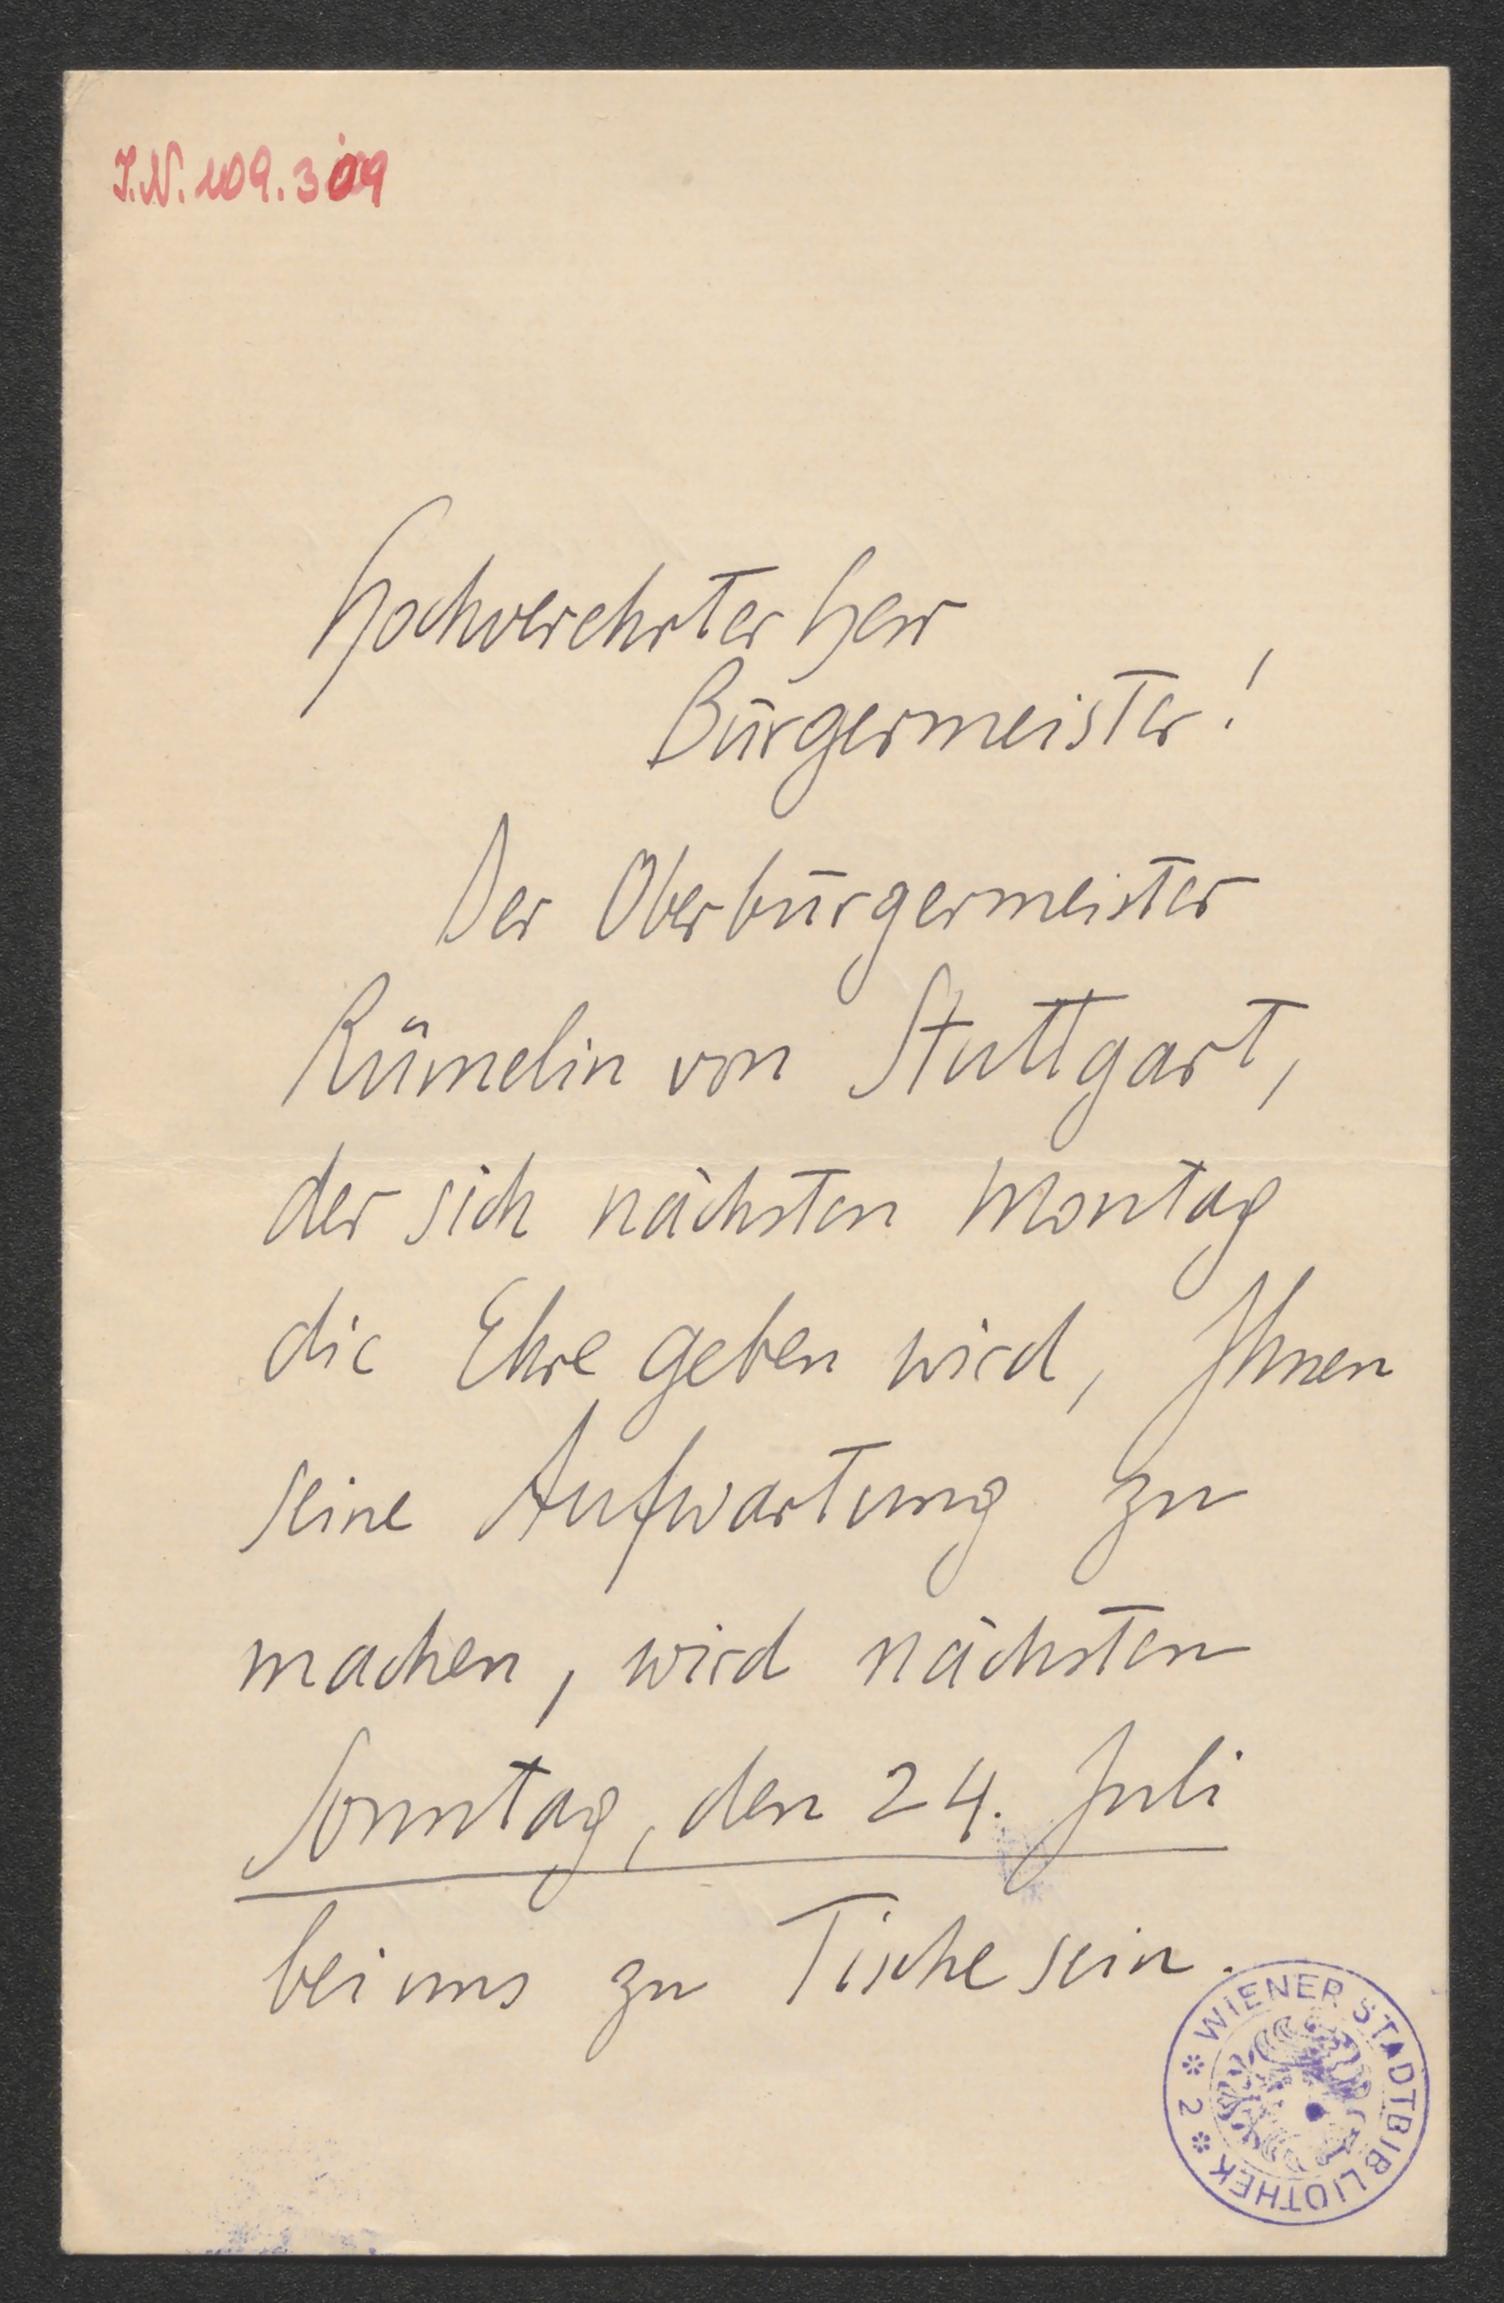 J.N. 109.309
Hochverehrter Herr
Bürgermeister!
Der Oberbürgermeister
Rümelin von Stuttgart,
der sich nächsten Montag
die Ehre geben wird, Ihnen
seine Aufwartung zu
machen, wird nächsten
Sonntag, den 24. Juli
bei uns zu Tische sein.
* WIENER STADTBIBLIOTHEK * 2